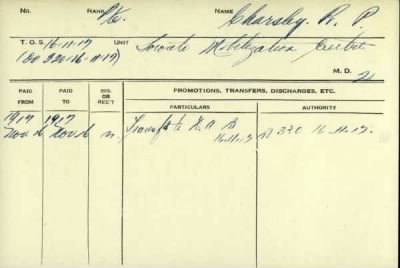 No. RANK Pte. NAME Charsley, R. P.
T.O.S. 16-11-17 UNIT Toronto Mobilization Centre
(DO 320-16-11-17)
M. D. 2
PAID FROM PAID TO SIG. OR REC'T PROMOTIONS, TRANSFERS, DISCHARGES, ETC.
PARTICULARS AUTHORITY
1917 1917
Nov 16 Nov 16 n. Transf to
16-11-17 320 16-11-17.